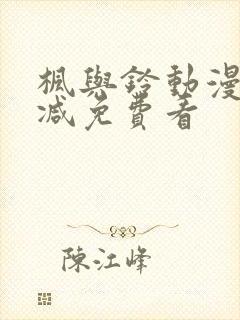 楓與鈴動漫
减免費看
陳江峰